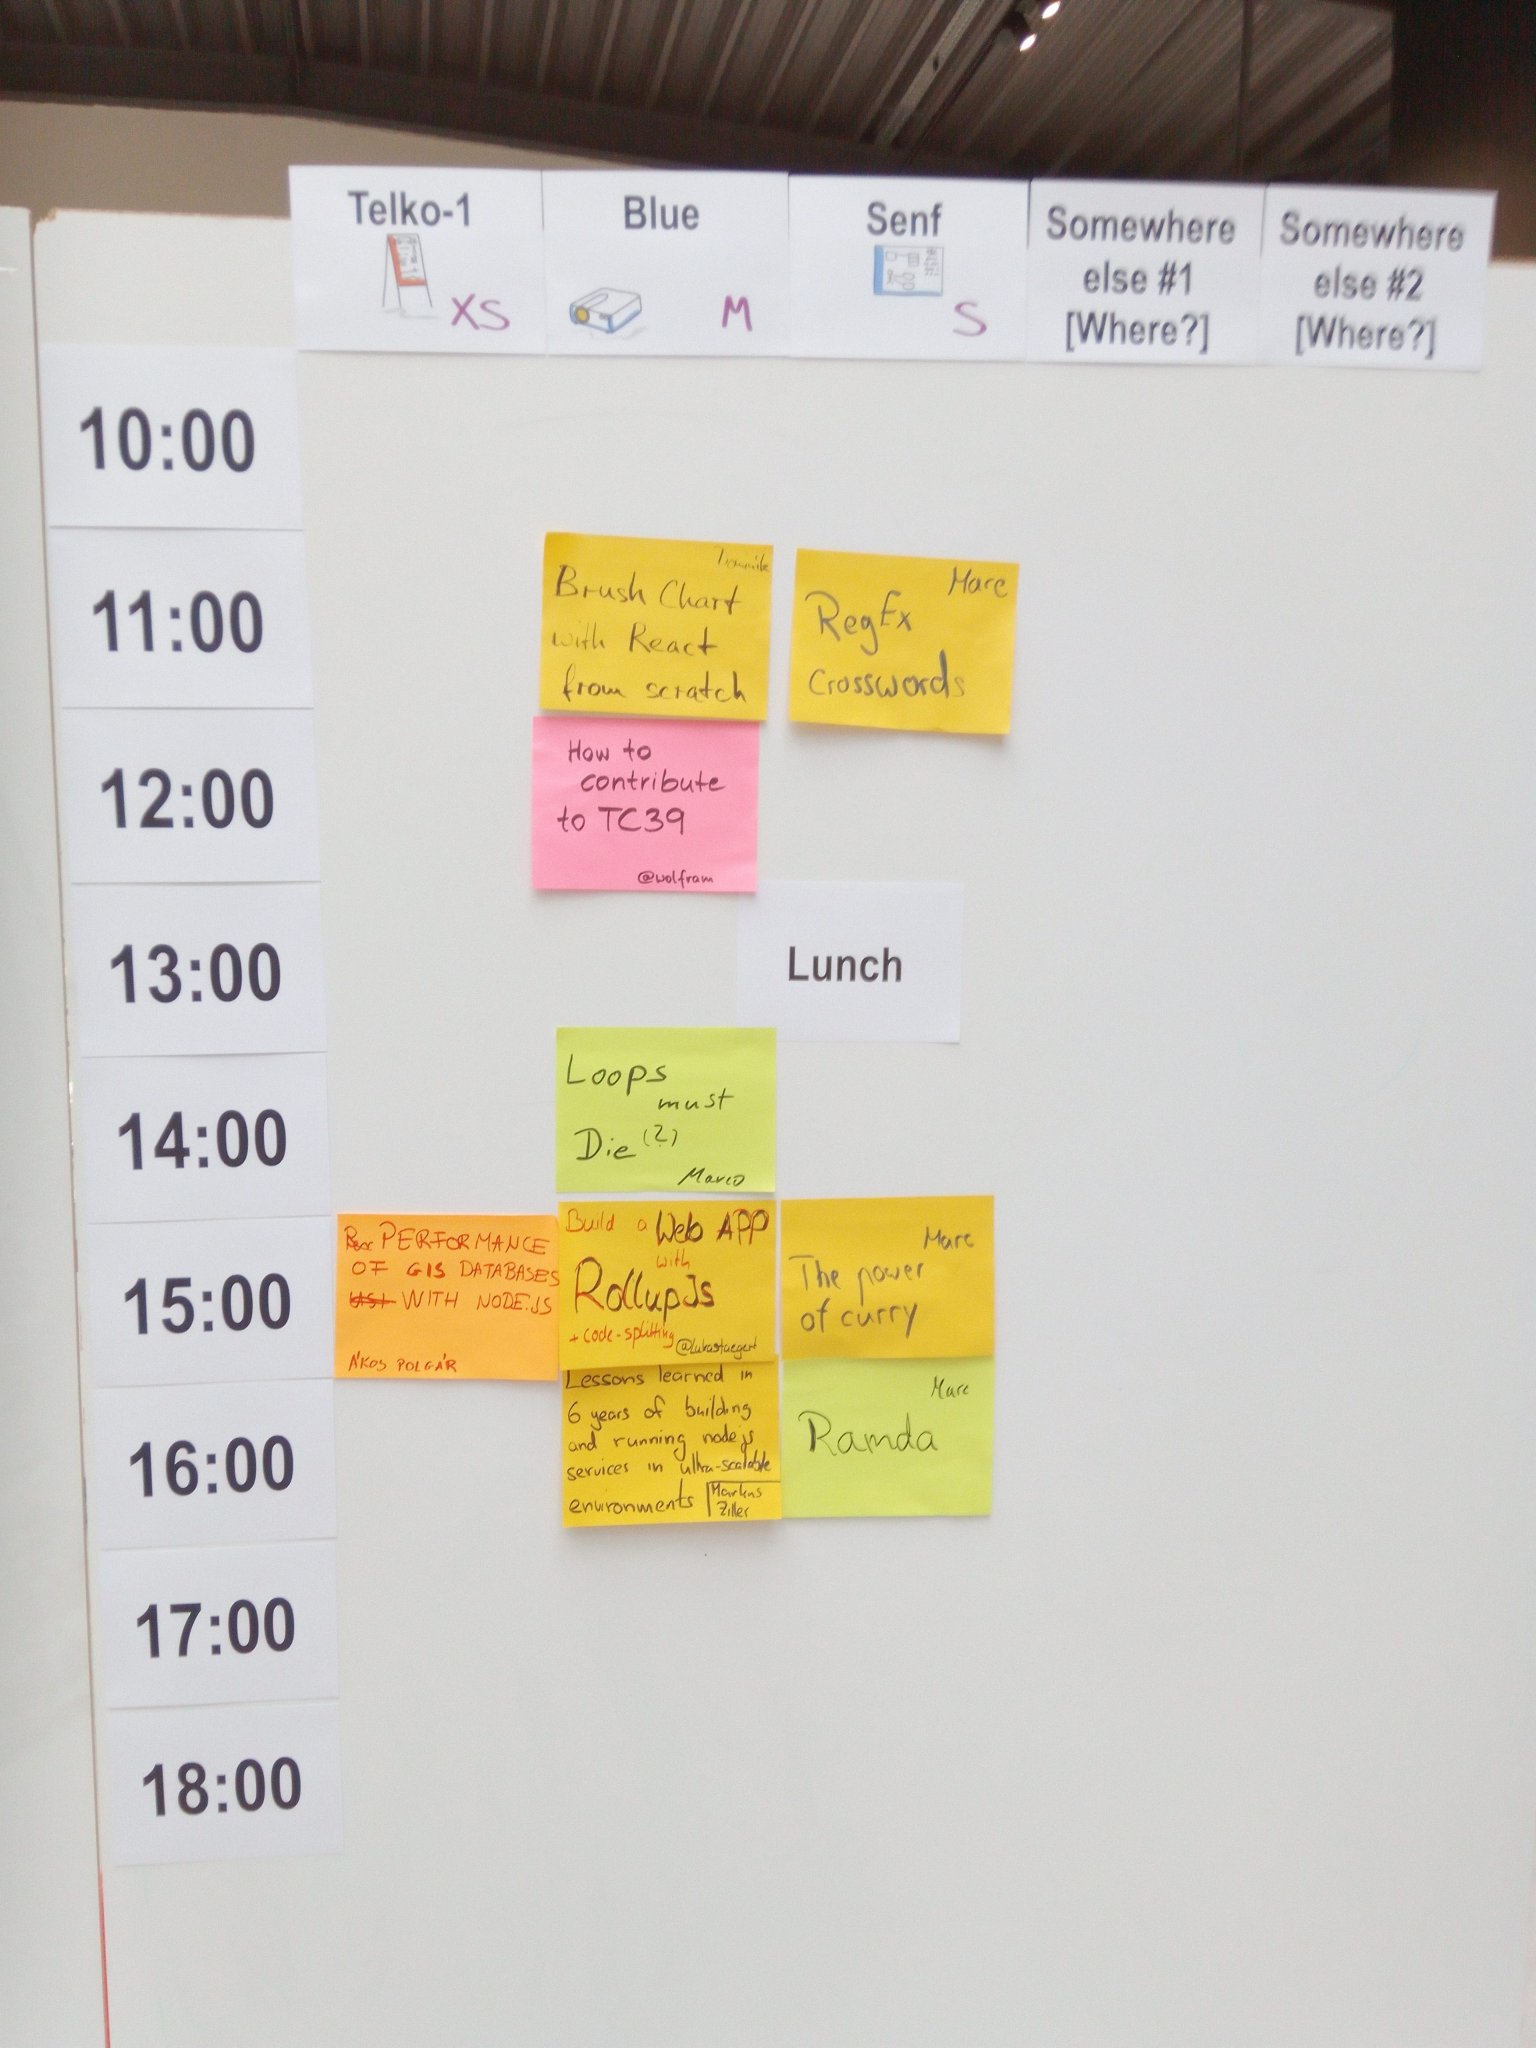 Telko-1
XS
Blue
M
Senf
S
Somewhere
else #1
[Where?]
Somewhere
else #2
[Where?]
10:00
11:00
Brush Chart
with React
from scratch
Marc
RegEx
Crosswords
12:00
How to
contribute
to TC39
@wolfram
13:00
Lunch
14:00
Loops
must
Die (?)
Marco
15:00
PERFORMANCE
OF GIS DATABASES
WITH NODE.JS
ÁKOS POLGÁR
Build a Web APP
with
RollupJs
+ code-splitting
@lukastaegert
Marc
The power
of curry
16:00
Lessons learned in
6 years of building
and running nodejs
services in ultra-scalable
environments
Markus
Ziller
Marc
Ramda
17:00
18:00